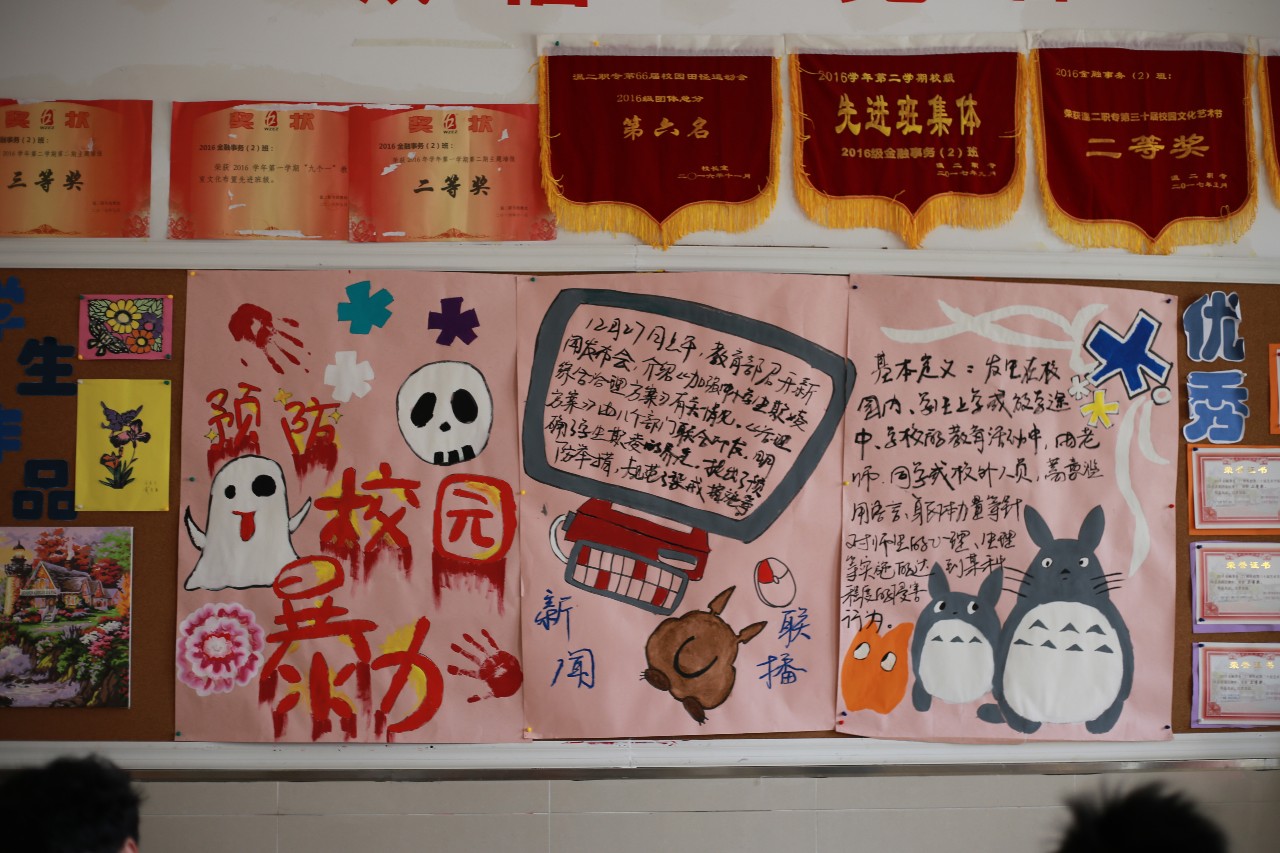 奖 状
三等奖
奖 状
2016 金融事务(2)班:
荣获 2016 学年第一学期"九个一"教
室文化布置先进班级。
奖 状
2016 金融事务(2)班:
二等奖
温二职专第66届校园田径运动会
2016级团体总分
第六名
校长室
二〇一六年十一月
2016学年第二学期校级
先进班集体
2016级金融事务(2)班
温二职专
2016金融事务(2)班:
荣获温二职专第三十届校园文化艺术节
二等奖
温二职专
学
生
作
品
预防
校园
暴力
12月27日上午,教育部召开新
闻发布会,介绍《加强中小学生欺凌
综合治理方案》有关情况。《治理
方案》由11个部门联合印发,明
确了学生欺凌的界定,提出了预
防举措,规范了惩戒措施等
新
闻
联
播
基本定义:发生在校
园内、学生上学或放学途
中、学校的教育活动中,由老
师、同学或校外人员,蓄意滥
用语言、身体力量等针
对师生的心理、生理
等实施的达到某种
程度的侵害
行为。
优
秀
荣誉证书
荣誉证书
荣誉证书